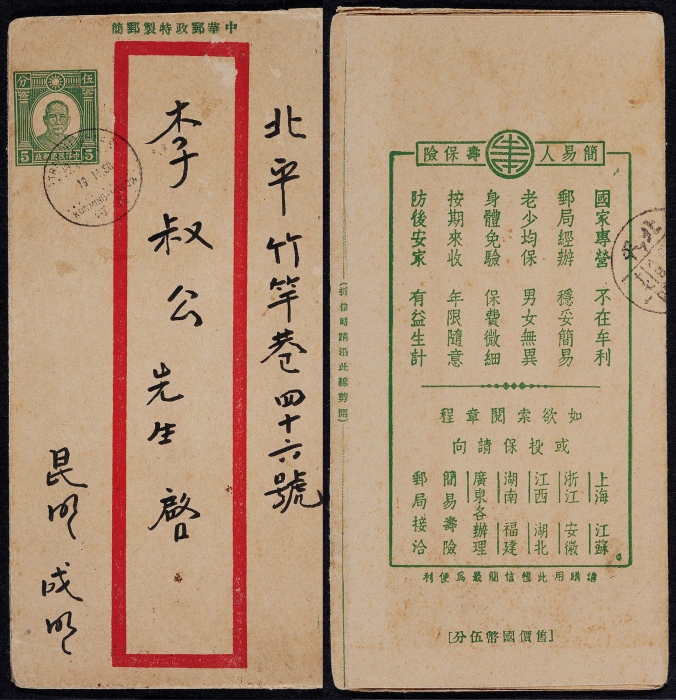 中華郵政特製郵簡
伍分
5 5
北平竹竿巷四十六號
李叔公先生啓
昆明成明
簡易人壽保險
國家專營 不在牟利
郵局經辦 穩妥簡易
老少均保 男女無異
身體免驗 保費微細
按期來收 年限隨意
防後安家 有益生計
如欲索閱章程
或投保請向
上海 江蘇
浙江 安徽
江西 湖北
湖南 福建
廣東各辦理
簡易壽險
郵局接洽
請購用此種信簡最爲便利
[售價國幣伍分]
(拆信時請沿此線剪開)
北平